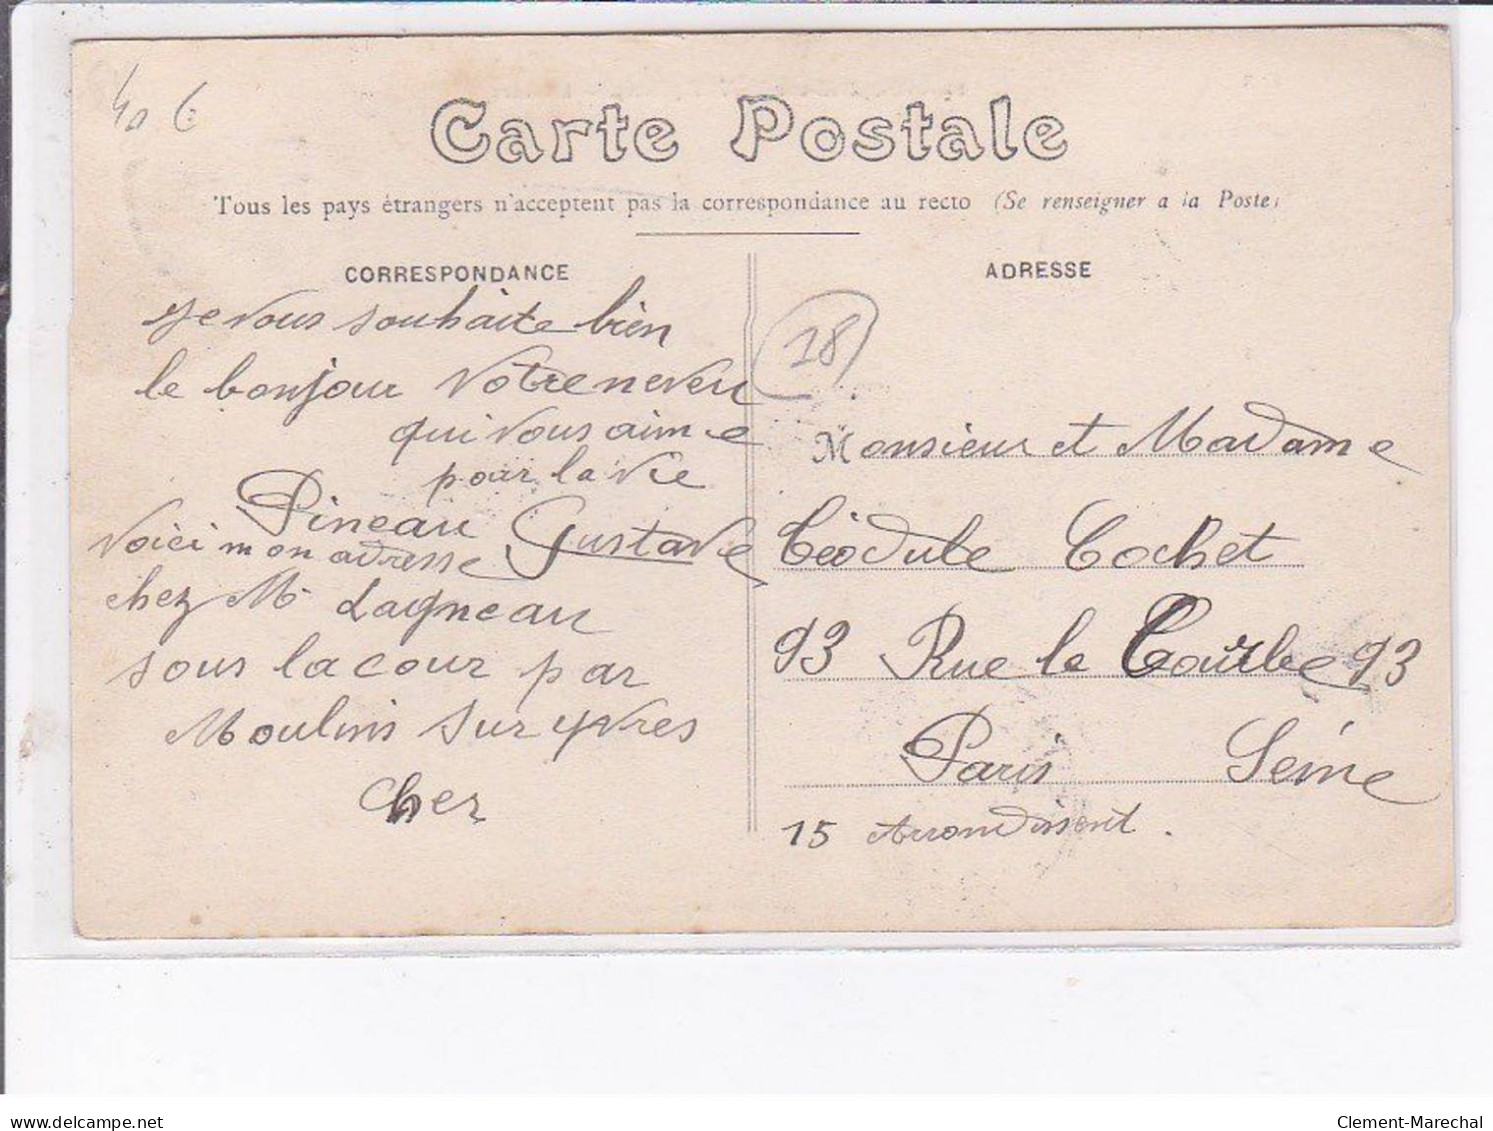 40 €
Carte Postale
Tous les pays étrangers n'acceptent pas la correspondance au recto (Se renseigner a la Poste)
CORRESPONDANCE
Je vous souhaite bien
le bonjour votre neveu
qui vous aime
pour la vie
Pineau Gustave
Voici mon adresse
chez Mr Lagneau
sous la cour par
Moulins sur yvres
Cher
ADRESSE
18
Monsieur et Madame
Téodule Cochet
93 Rue le Courbe 93
Paris Seine
15 Arrondissent.
delcampe.net
Clement-Marechal